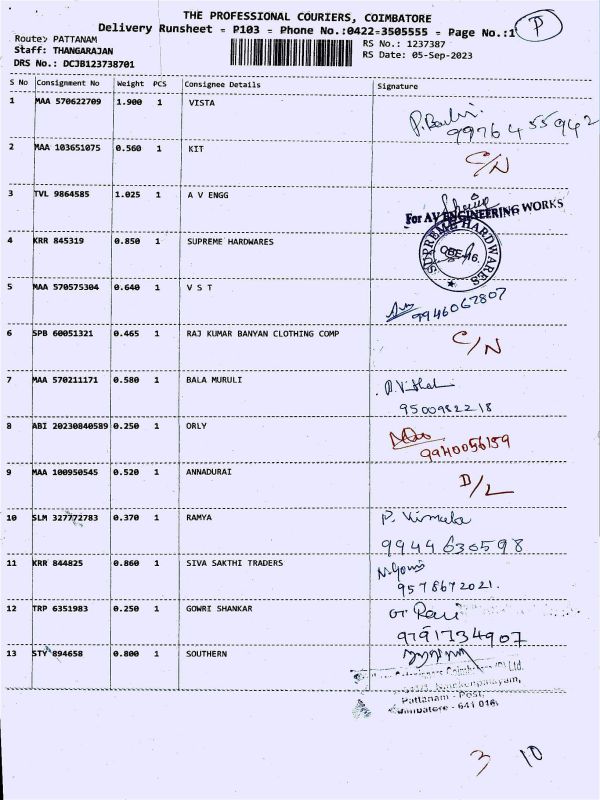 THE PROFESSIONAL COURIERS, COIMBATORE
Delivery Runsheet = P103 = Phone No.:0422-3505555 = Page No.:1
P
Route: PATTANAM
Staff: THANGARAJAN
DRS No.: DCJB123738701
RS No.: 1237387
RS Date: 05-Sep-2023
S No Consignment No Weight PCS Consignee Details Signature
1 MAA 570622709 1.900 1 VISTA
9976455942
2 MAA 103651075 0.560 1 KIT C/N
3 TVL 9864585 1.025 1 A V ENGG
For AV ENGINEERING WORKS
4 KRR 845319 0.850 1 SUPREME HARDWARES
SUPREME HARDWARES
5 MAA 570575304 0.640 1 V S T
9946062807
6 SPB 60051321 0.465 1 RAJ KUMAR BANYAN CLOTHING COMP C/N
7 MAA 570211171 0.580 1 BALA MURULI
9500982218
8 ABI 20230840589 0.250 1 ORLY
9940056159
9 MAA 100950545 0.520 1 ANNADURAI D/L
10 SLM 327772783 0.370 1 RAMYA P. Vimala
9944630598
11 KRR 844825 0.860 1 SIVA SAKTHI TRADERS
9578672021.
12 TRP 6351983 0.250 1 GOWRI SHANKAR
9791734907
13 STY 894658 0.800 1 SOUTHERN
Ltd.
Pattanam - Post,
- 641 016.
3 10